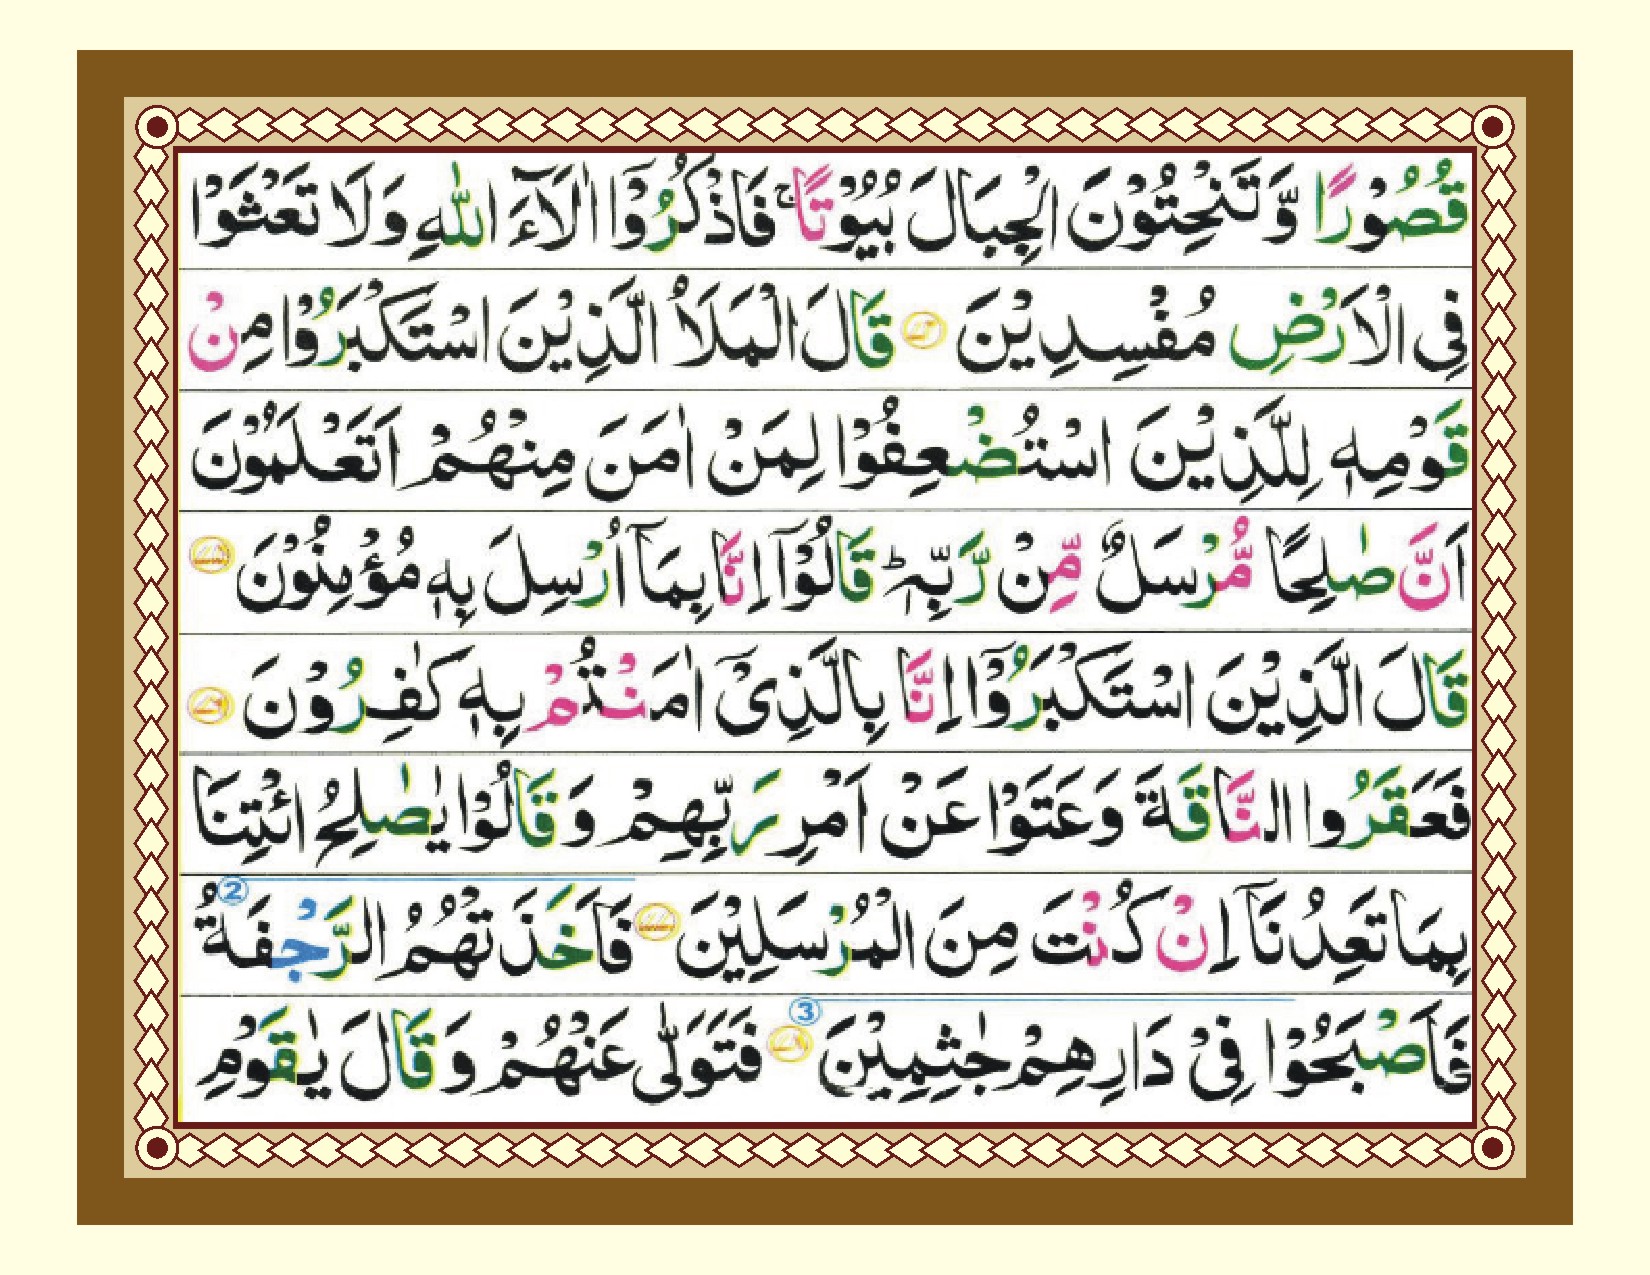 قُصُوْرًا وَّ تَنْحِتُوْنَ الْجِبَالَ بُيُوْتًا ۚ فَاذْكُرُوْۤا اٰلَآءَ اللّٰهِ وَلَا تَعْثَوْا
فِى الْاَرْضِ مُفْسِدِيْنَ قَالَ الْمَلَاُ الَّذِيْنَ اسْتَكْبَرُوْا مِنْ
قَوْمِهٖ لِلَّذِيْنَ اسْتُضْعِفُوْا لِمَنْ اٰمَنَ مِنْهُمْ اَتَعْلَمُوْنَ
اَنَّ صٰلِحًا مُّرْسَلٌ مِّنْ رَّبِّهٖ ؕ قَالُوْۤا اِنَّا بِمَاۤ اُرْسِلَ بِهٖ مُؤْمِنُوْنَ
قَالَ الَّذِيْنَ اسْتَكْبَرُوْۤا اِنَّا بِالَّذِىْۤ اٰمَنْتُمْ بِهٖ كٰفِرُوْنَ
فَعَقَرُوا النَّاقَةَ وَعَتَوْا عَنْ اَمْرِ رَبِّهِمْ وَقَالُوْا يٰصٰلِحُ ائْتِنَا
بِمَا تَعِدُنَاۤ اِنْ كُنْتَ مِنَ الْمُرْسَلِيْنَ فَاَخَذَتْهُمُ الرَّجْفَةُ ②
فَاَصْبَحُوْا فِىْ دَارِهِمْ جٰثِمِيْنَ ③ فَتَوَلّٰى عَنْهُمْ وَقَالَ يٰقَوْمِ